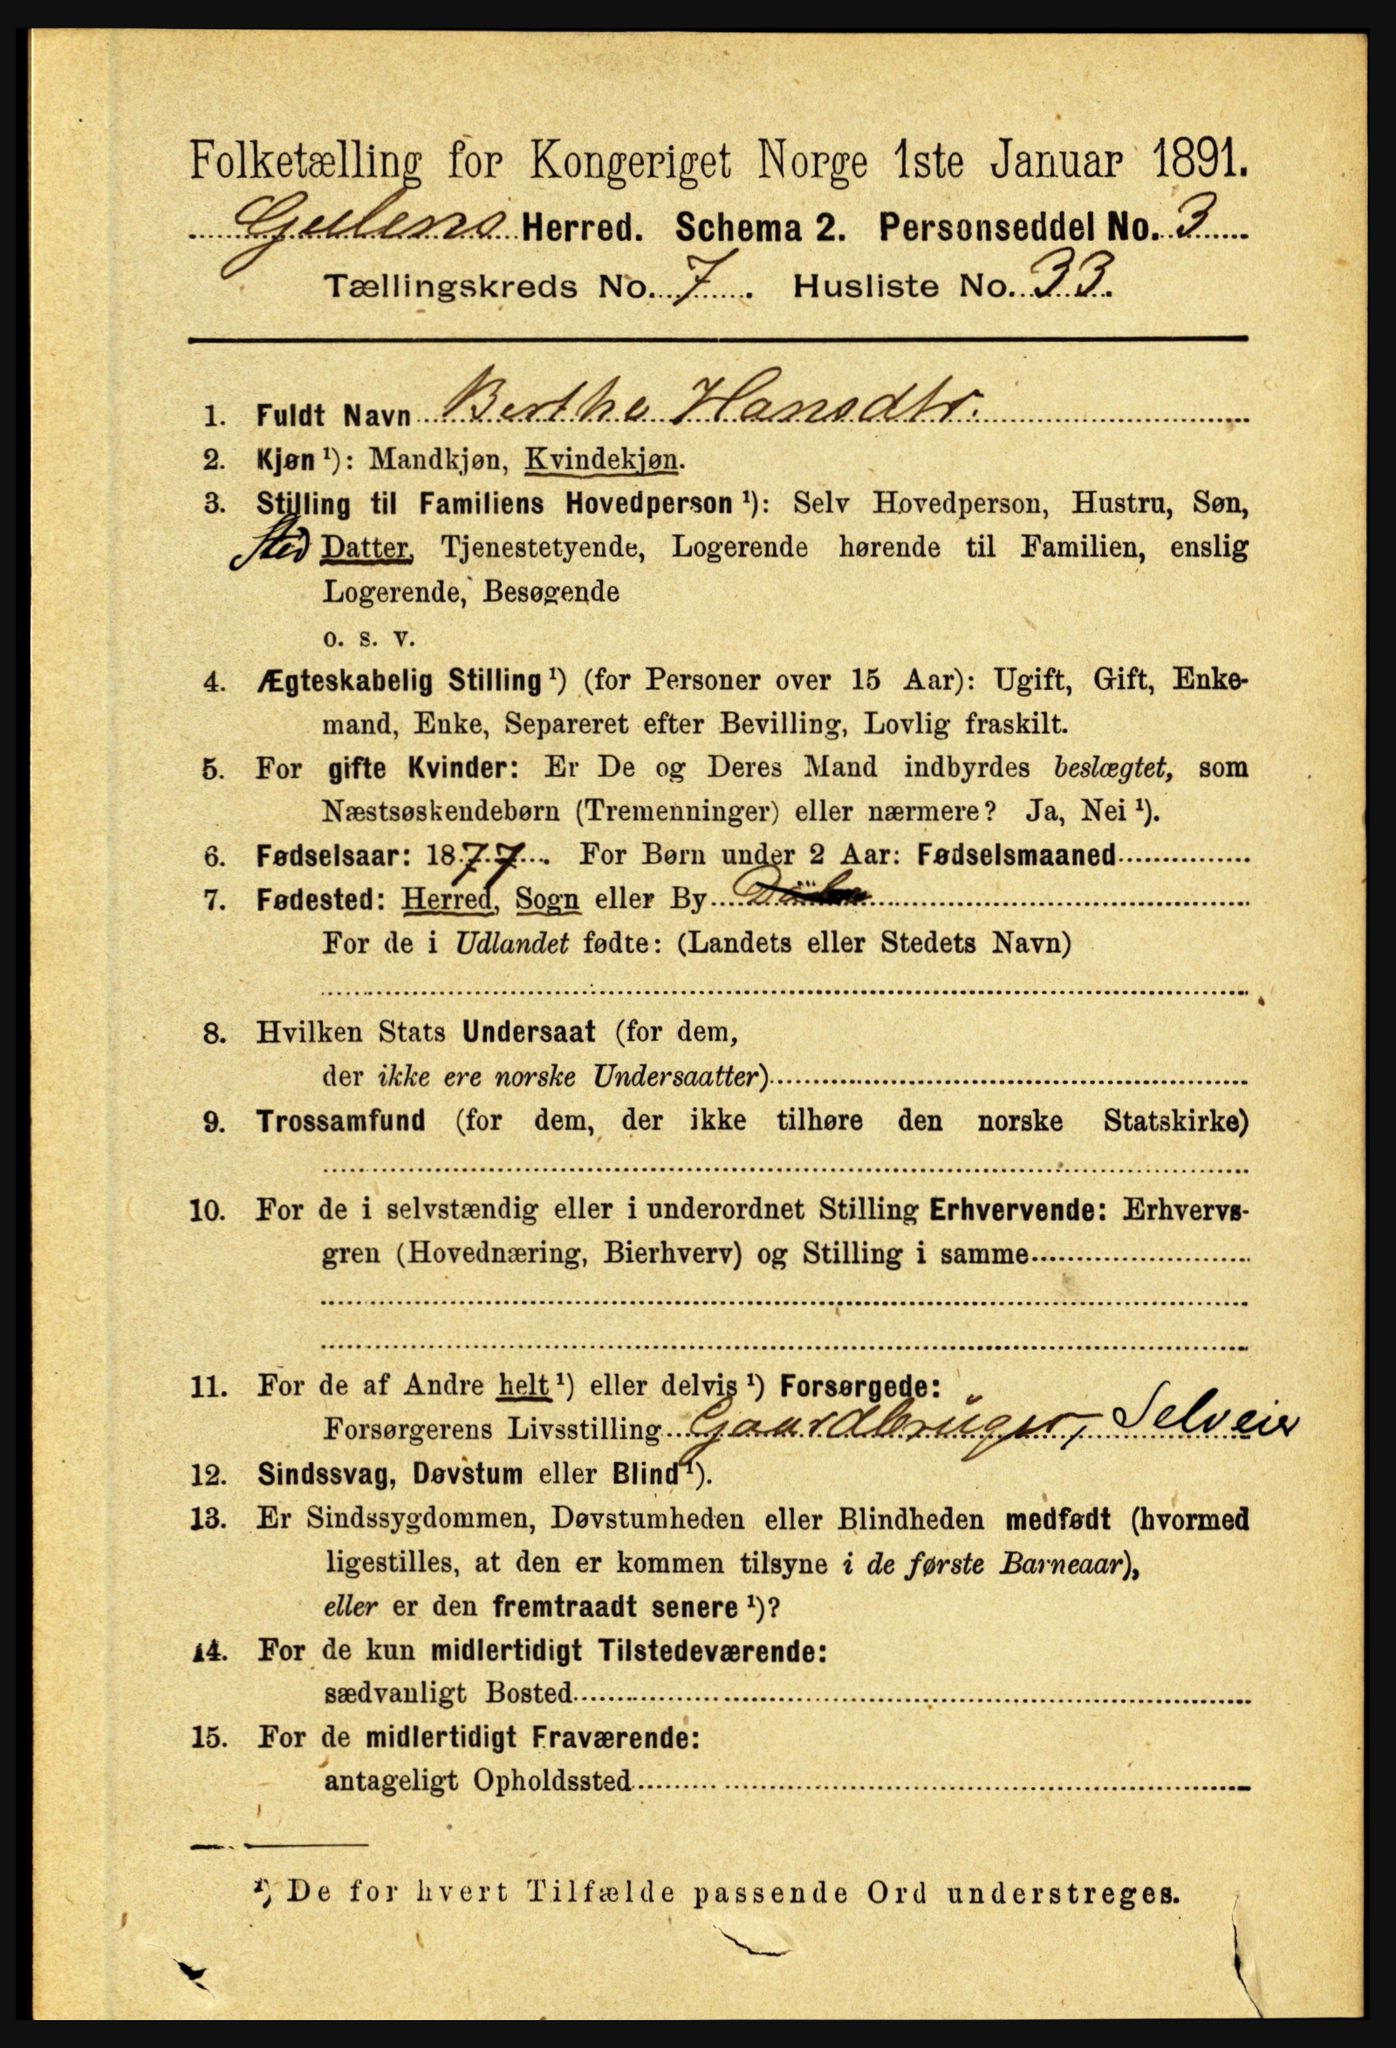 Folketælling for Kongeriget Norge 1ste Januar 1891.
Gulens Herred. Schema 2. Personseddel No. 3
Tællingskreds No. 7. Husliste No. 33.
1. Fuldt Navn Berthe Hansdtr.
2. Kjøn ¹): Mandkjøn, Kvindekjøn.
3. Stilling til Familiens Hovedperson ¹): Selv Hovedperson, Hustru, Søn,
Sted Datter, Tjenestetyende, Logerende hørende til Familien, enslig
Logerende, Besøgende
o. s. v.
4. Ægteskabelig Stilling ¹) (for Personer over 15 Aar): Ugift, Gift, Enke-
mand, Enke, Separeret efter Bevilling, Lovlig fraskilt.
5. For gifte Kvinder: Er De og Deres Mand indbyrdes beslægtet, som
Næstsøskendebørn (Tremenninger) eller nærmere? Ja, Nei ¹).
6. Fødselsaar: 1877. For Børn under 2 Aar: Fødselsmaaned
7. Fødested: Herred, Sogn eller By
For de i Udlandet fødte: (Landets eller Stedets Navn)
8. Hvilken Stats Undersaat (for dem,
der ikke ere norske Undersaatter)
9. Trossamfund (for dem, der ikke tilhøre den norske Statskirke)
10. For de i selvstændig eller i underordnet Stilling Erhvervende: Erhvervs-
gren (Hovednæring, Bierhverv) og Stilling i samme
11. For de af Andre helt ¹) eller delvis ¹) Forsørgede:
Forsørgerens Livsstilling Gaardbruger, Selveier
12. Sindssvag, Døvstum eller Blind ¹).
13. Er Sindssygdommen, Døvstumheden eller Blindheden medfødt (hvormed
ligestilles, at den er kommen tilsyne i de første Barneaar),
eller er den fremtraadt senere ¹)?
14. For de kun midlertidigt Tilstedeværende:
sædvanligt Bosted
15. For de midlertidigt Fraværende:
antageligt Opholdssted
¹) De for hvert Tilfælde passende Ord understreges.